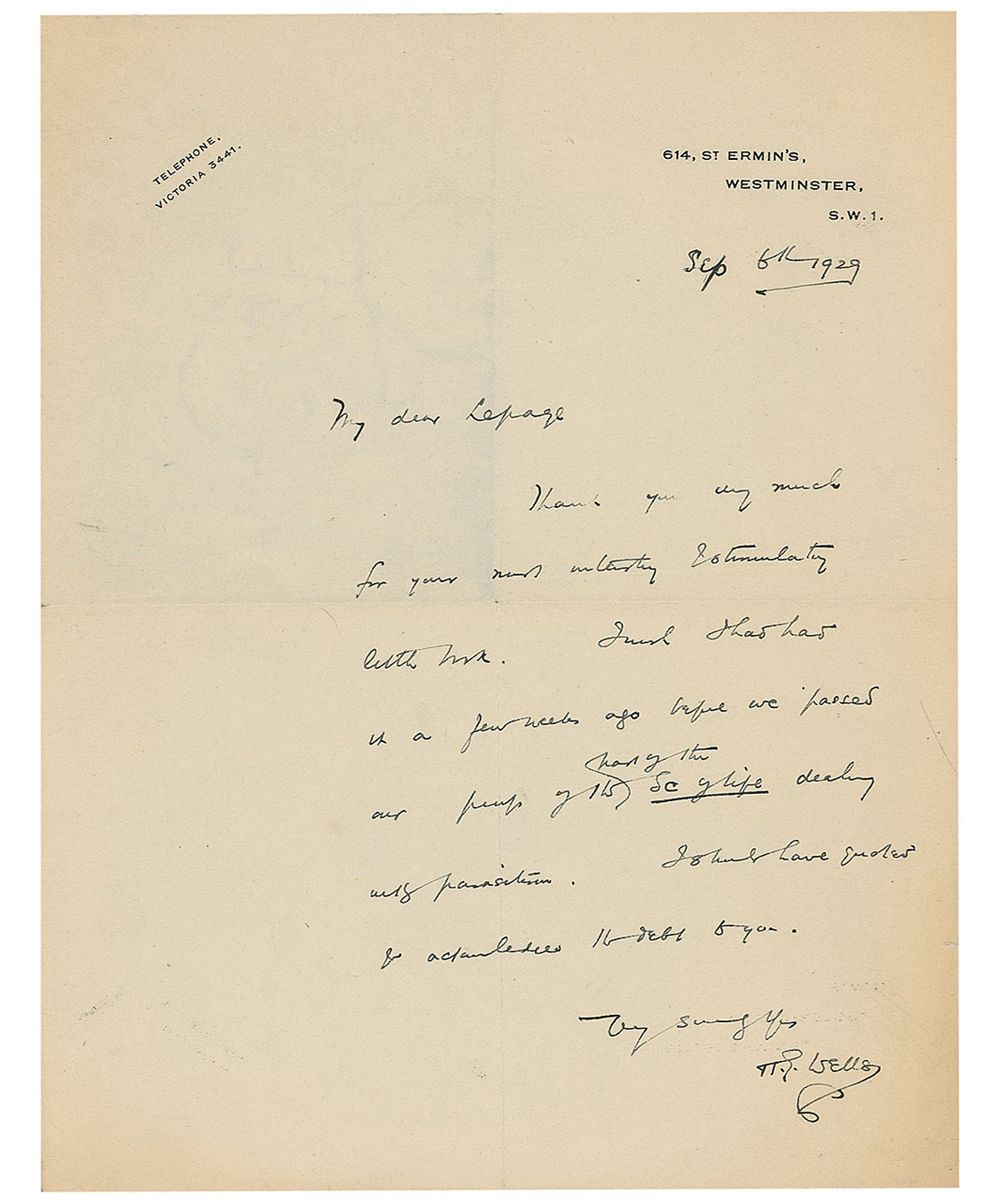 TELEPHONE,
VICTORIA 3441.
614, ST ERMIN'S,
WESTMINSTER,
S.W.1.
Sep 6th 1929
My dear Lepage
Thank you very much
for your most interesting & stimulating
little book. I wish I had had
it a few weeks ago before we passed
our proofs of the
part of the
Sc of Life dealing
with parasitism. I should have quoted
& acknowledged the debt to you.
Very sincerely Yrs
H.G. Wells